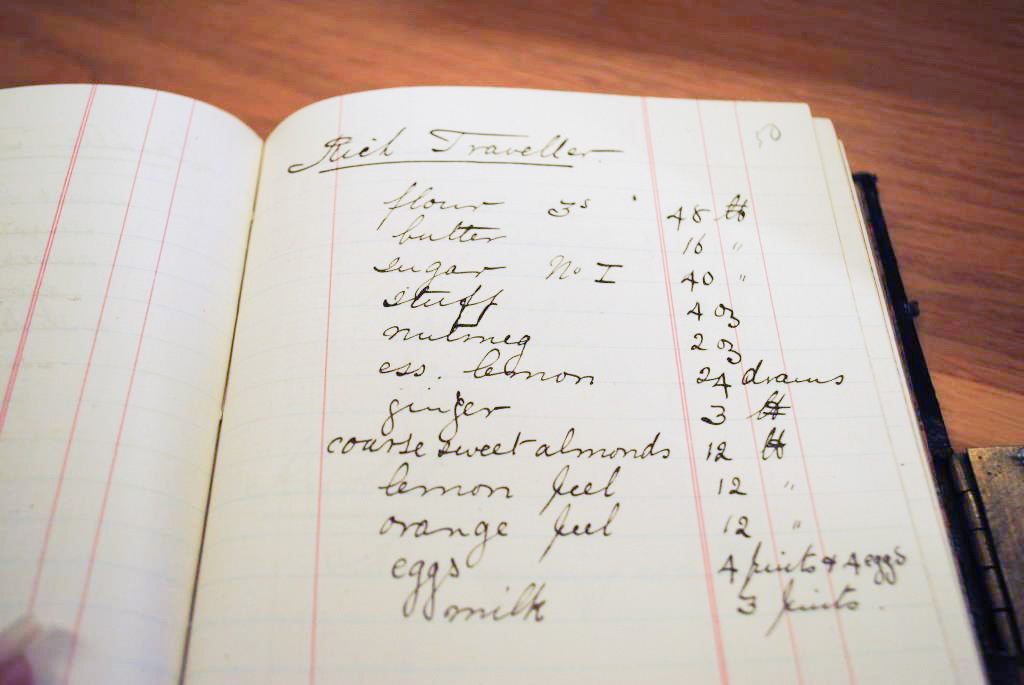 50
Rich Traveller
flour 3s 48 lb
butter 16 "
sugar No I 40 "
stuff 4 oz
nutmeg 2 oz
ess. lemon 24 drams
ginger 3 lb
course sweet almonds 12 lb
lemon peel 12 "
orange peel 12 "
eggs 4 pints & 4 eggs
milk 3 pints.